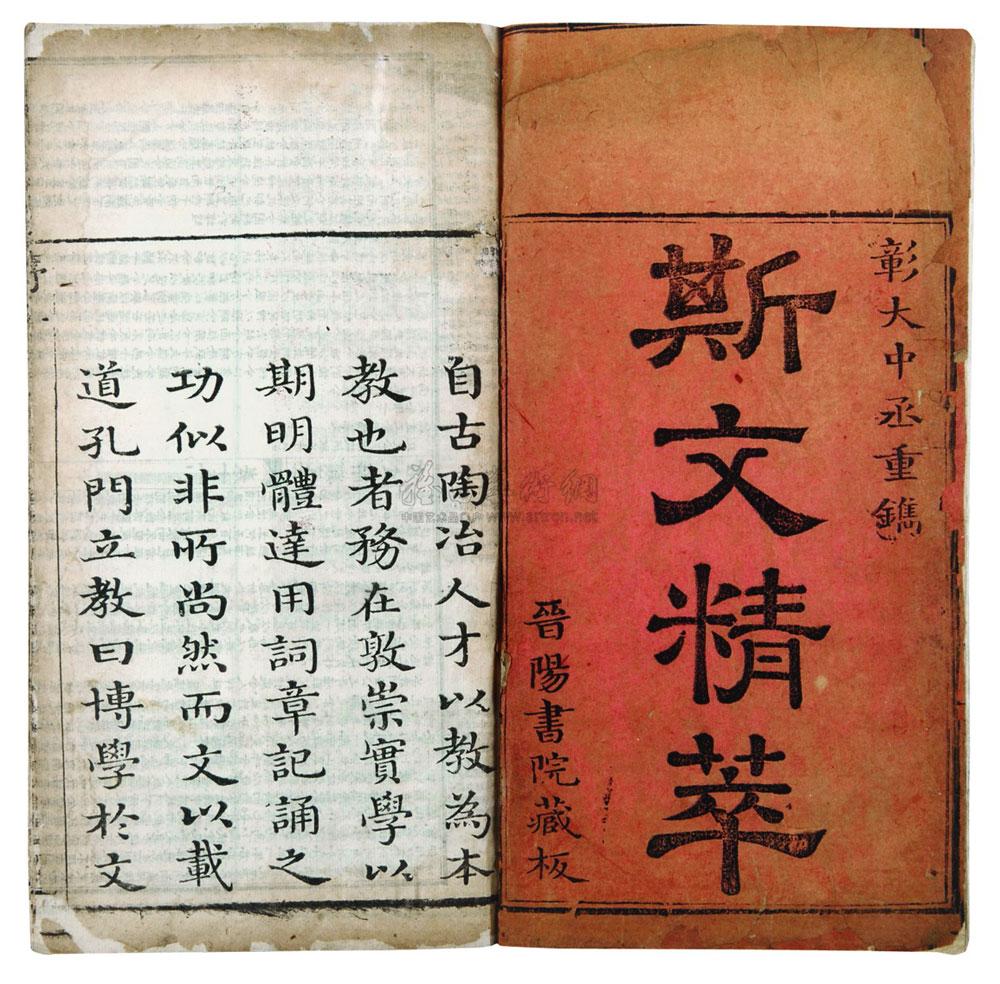 彰大中丞重鐫
斯文精萃
晉陽書院藏板
自古陶冶人才以教為本
教也者務在敦崇實學以
期明體達用詞章記誦之
功似非所尚然而文以載
道孔門立教曰博學於文
序